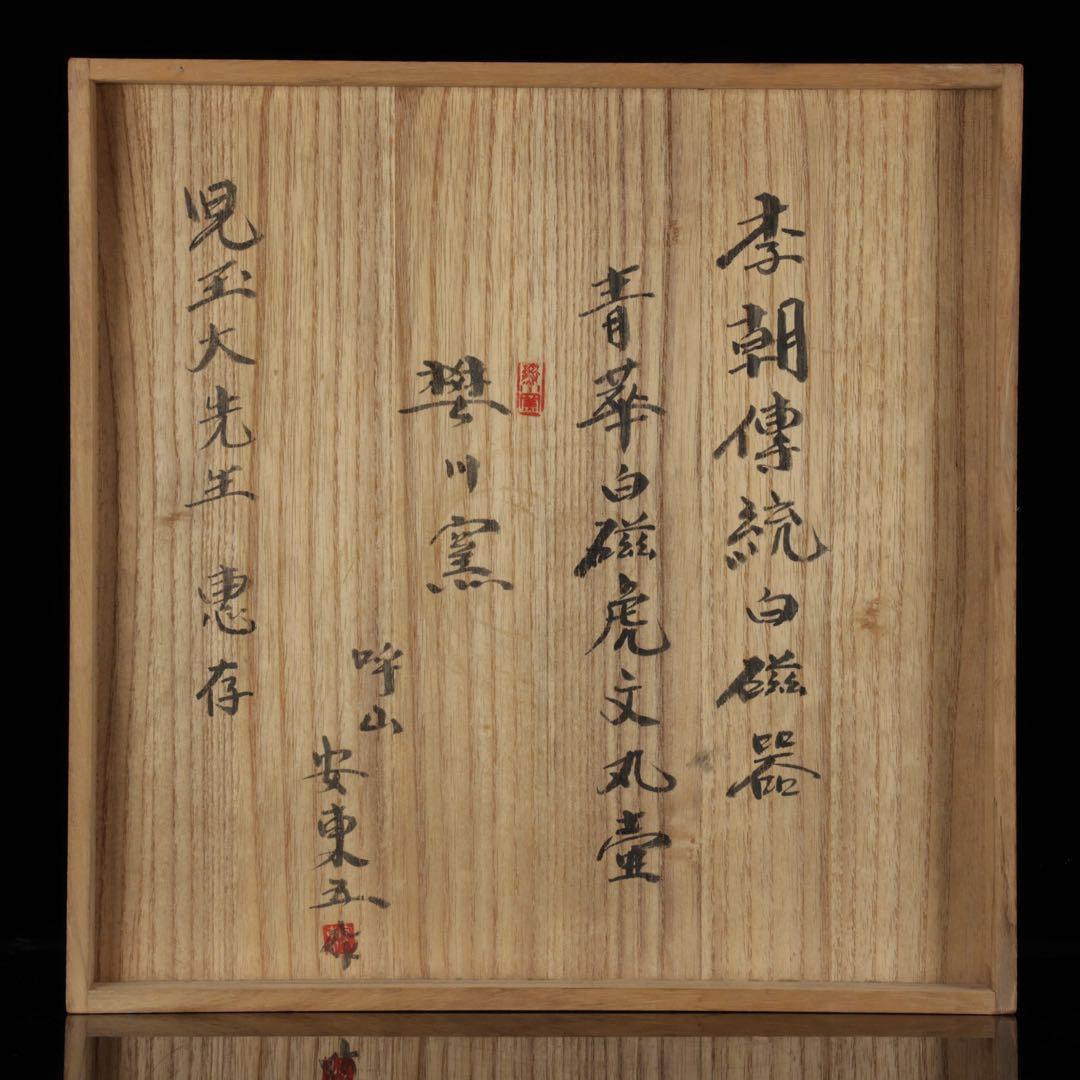 李朝傳統白磁器
青華白磁虎文丸壷
樊川窯
呼山
安東五作
児玉大先生 惠存